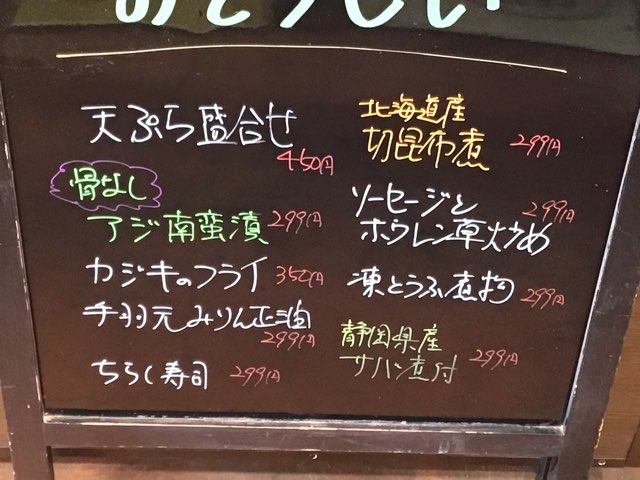 天ぷら盛合せ
450円
骨なし
アジ南蛮漬 299円
カジキのフライ 350円
手羽元みりん正油
299円
ちらし寿司 299円
北海道産
切昆布煮 299円
ソーセージと 299円
ホウレン草炒め
凍とうふ煮物 299円
静岡県産
サバ煮付 299円